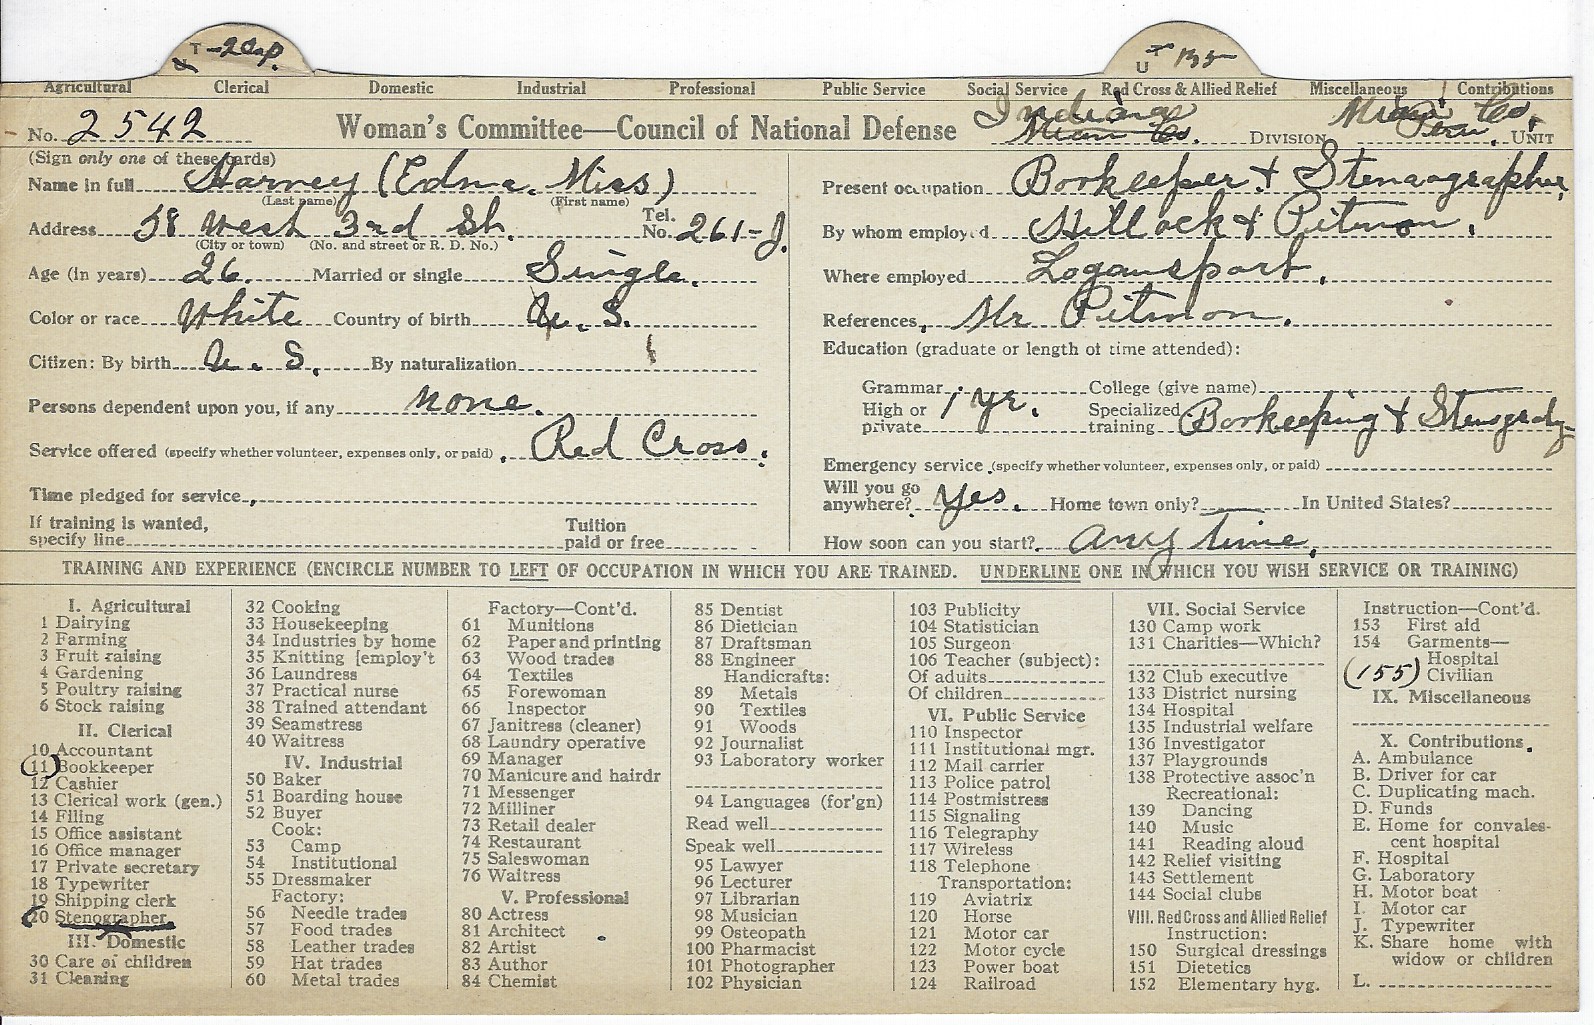 T -2 Cap.
U 155
Agricultural Clerical Domestic Industrial Professional Public Service Social Service Red Cross & Allied Relief Miscellaneous Contributions
No. 2542 Woman's Committee—Council of National Defense Indiana Miami Co. DIVISION Miami Co. Peru. UNIT
(Sign only one of these cards)
Name in full Harvey (Edna. Miss)
(Last name) (First name)
Address 58 West 3rd St. Tel. No. 261-J.
(City or town) (No. and street or R. D. No.)
Age (in years) 26. Married or single Single.
Color or race White Country of birth U. S.
Citizen: By birth U. S. By naturalization
Persons dependent upon you, if any none.
Service offered (specify whether volunteer, expenses only, or paid) Red Cross.
Time pledged for service
If training is wanted, specify line Tuition paid or free
Present occupation Bookeeper & Stenographer,
By whom employed Hillock & Pitmon.
Where employed Logansport.
References, Mr Pitmon.
Education (graduate or length of time attended):
Grammar College (give name)
High or private 1 yr. Specialized training Bookeeping &
Emergency service (specify whether volunteer, expenses only, or paid)
Will you go anywhere? Yes. Home town only? In United States?
How soon can you start? any time.
TRAINING AND EXPERIENCE (ENCIRCLE NUMBER TO LEFT OF OCCUPATION IN WHICH YOU ARE TRAINED. UNDERLINE ONE IN WHICH YOU WISH SERVICE OR TRAINING)
I. Agricultural
1 Dairying
2 Farming
3 Fruit raising
4 Gardening
5 Poultry raising
6 Stock raising
II. Clerical
10 Accountant
11 Bookkeeper
12 Cashier
13 Clerical work (gen.)
14 Filing
15 Office assistant
16 Office manager
17 Private secretary
18 Typewriter
19 Shipping clerk
20 Stenographer
III. Domestic
30 Care of children
31 Cleaning
32 Cooking
33 Housekeeping
34 Industries by home
35 Knitting [employ't
36 Laundress
37 Practical nurse
38 Trained attendant
39 Seamstress
40 Waitress
IV. Industrial
50 Baker
51 Boarding house
52 Buyer
Cook:
53 Camp
54 Institutional
55 Dressmaker
Factory:
56 Needle trades
57 Food trades
58 Leather trades
59 Hat trades
60 Metal trades
Factory—Cont'd.
61 Munitions
62 Paper and printing
63 Wood trades
64 Textiles
65 Forewoman
66 Inspector
67 Janitress (cleaner)
68 Laundry operative
69 Manager
70 Manicure and hairdr
71 Messenger
72 Milliner
73 Retail dealer
74 Restaurant
75 Saleswoman
76 Waitress
V. Professional
80 Actress
81 Architect
82 Artist
83 Author
84 Chemist
85 Dentist
86 Dietician
87 Draftsman
88 Engineer
Handicrafts:
89 Metals
90 Textiles
91 Woods
92 Journalist
93 Laboratory worker
94 Languages (for'gn)
Read well
Speak well
95 Lawyer
96 Lecturer
97 Librarian
98 Musician
99 Osteopath
100 Pharmacist
101 Photographer
102 Physician
103 Publicity
104 Statistician
105 Surgeon
106 Teacher (subject):
Of adults
Of children
VI. Public Service
110 Inspector
111 Institutional mgr.
112 Mail carrier
113 Police patrol
114 Postmistress
115 Signaling
116 Telegraphy
117 Wireless
118 Telephone
Transportation:
119 Aviatrix
120 Horse
121 Motor car
122 Motor cycle
123 Power boat
124 Railroad
VII. Social Service
130 Camp work
131 Charities—Which?
132 Club executive
133 District nursing
134 Hospital
135 Industrial welfare
136 Investigator
137 Playgrounds
138 Protective assoc'n
Recreational:
139 Dancing
140 Music
141 Reading aloud
142 Relief visiting
143 Settlement
144 Social clubs
VIII. Red Cross and Allied Relief
Instruction:
150 Surgical dressings
151 Dietetics
152 Elementary hyg.
Instruction—Cont'd.
153 First aid
154 Garments—
Hospital
(155) Civilian
IX. Miscellaneous
X. Contributions
A. Ambulance
B. Driver for car
C. Duplicating mach.
D. Funds
E. Home for convales-
cent hospital
F. Hospital
G. Laboratory
H. Motor boat
I. Motor car
J. Typewriter
K. Share home with
widow or children
L.